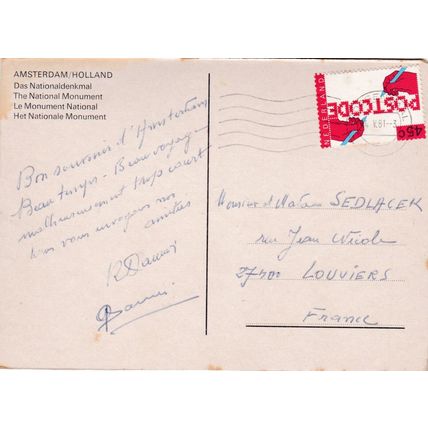 AMSTERDAM/HOLLAND
Das Nationaldenkmal
The National Monument
Le Monument National
Het Nationale Monument
Bon souvenir d'Amsterdam
Beau temps - Beau voyage -
malheureusement trop court
nous vous envoyons nos
amitiés
NEDERLAND
POSTCODE
45c
Monsieur et Madame SEDLACEK
rue Jean Nicole
27400 LOUVIERS
France